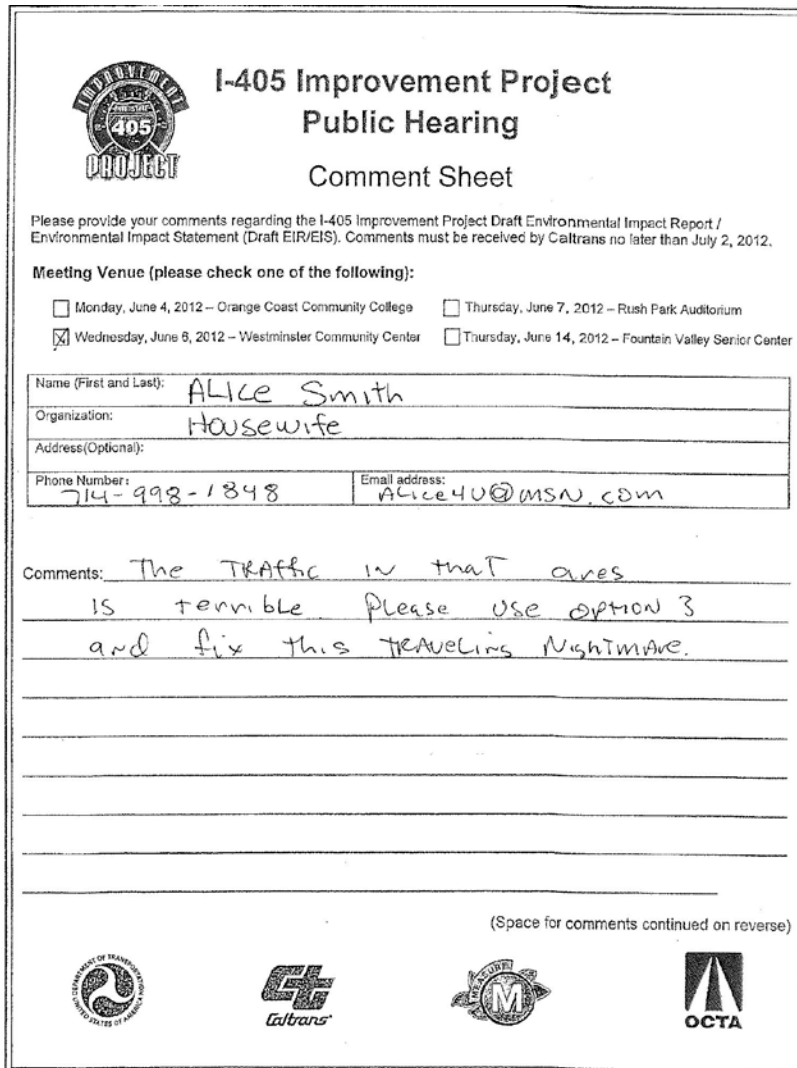 IMPROVEMENT
405
PROJECT
I-405 Improvement Project
Public Hearing
Comment Sheet
Please provide your comments regarding the I-405 Improvement Project Draft Environmental Impact Report /
Environmental Impact Statement (Draft EIR/EIS). Comments must be received by Caltrans no later than July 2, 2012.
Meeting Venue (please check one of the following):
Monday, June 4, 2012 – Orange Coast Community College
Thursday, June 7, 2012 – Rush Park Auditorium
Wednesday, June 6, 2012 – Westminster Community Center
Thursday, June 14, 2012 – Fountain Valley Senior Center
Name (First and Last): ALICE Smith
Organization: Housewife
Address(Optional):
Phone Number: 714-998-1848
Email address: ALice4U@MSN.com
Comments: The TRAffic in that ares
is terrible Please use option 3
and fix this TRAveLing NightmAre.
(Space for comments continued on reverse)
DEPARTMENT OF TRANSPORTATION
UNITED STATES OF AMERICA
Caltrans
MEASURE
M
OCTA